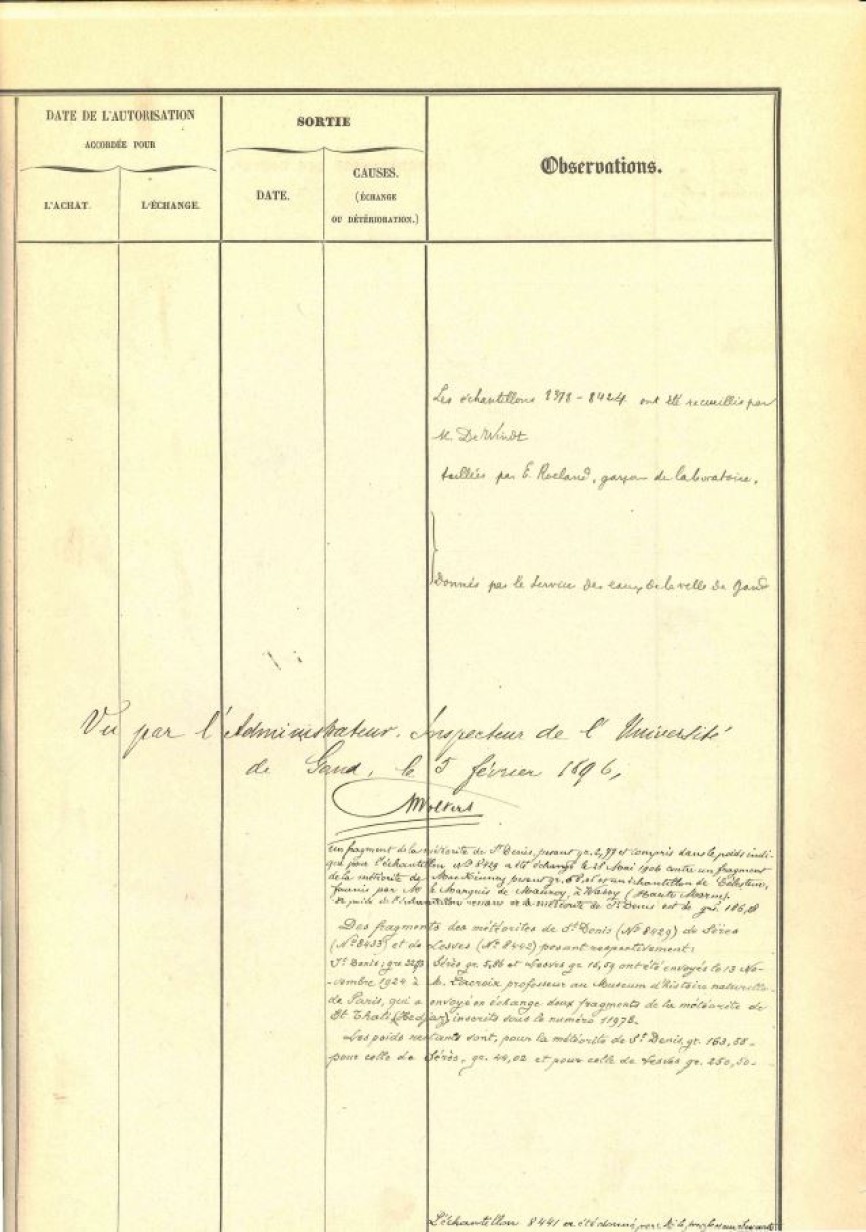 DATE DE L'AUTORISATION
ACCORDÉE POUR
L'ACHAT.
L'ÉCHANGE.
SORTIE
DATE.
CAUSES.
(ÉCHANGE
OU DÉTÉRIORATION.)
Observations.
Les échantillons 8378 - 8424 ont été recueillis par
M. De Windt
taillées par E. Roeland, garçon de laboratoire.
Donnés par le Service des eaux de la ville de Gand
Vu par l'Administrateur-Inspecteur de l'Université
de Gand, le 5 février 1896,
Wolters
un fragment de la météorite de St Denis, pesant gr. 2,77 et compris dans le poids indi-
qué pour l'échantillon No 8429 a été échangé le 28 Mai 1906 contre un fragment
de la météorite de Mac Kinney pesant gr. et un échantillon de Célestine,
fournis par Mr le Marquis de Mauroy, à Wassy (Haute Marne).
Le poids de l'échantillon restant de la météorite de St Denis est de grs. 186,18
Des fragments des météorites de St Denis (No 8429) de Sérès
(No 8433) et de Lesves (No 8442) pesant respectivement:
St Denis; grs Sérès gr. 5,86 et Lesves gr 16,59 ont été envoyés le 13 No-
-vembre 1924 à M. Lacroix professeur au Museum d'histoire naturelle
de Paris, qui a envoyé en échange deux fragments de la météorite de
St Chati (Hedjaz) inscrits sous le numéro 11978.
Les poids restants sont, pour la météorite de St Denis, gr. 163,55-
pour celle de Sérès, gr. 44,02 et pour celle de Lesves gr. 250,50-
L'échantillon 8441 a été donné par Mr le professeur